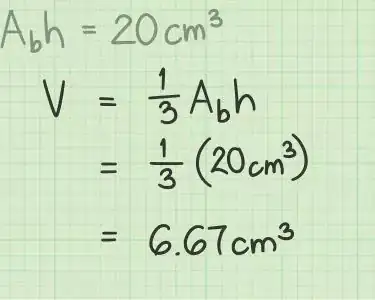 A_b h = 20 cm³
V = 1/3 A_b h
= 1/3 (20 cm³)
= 6.67 cm³